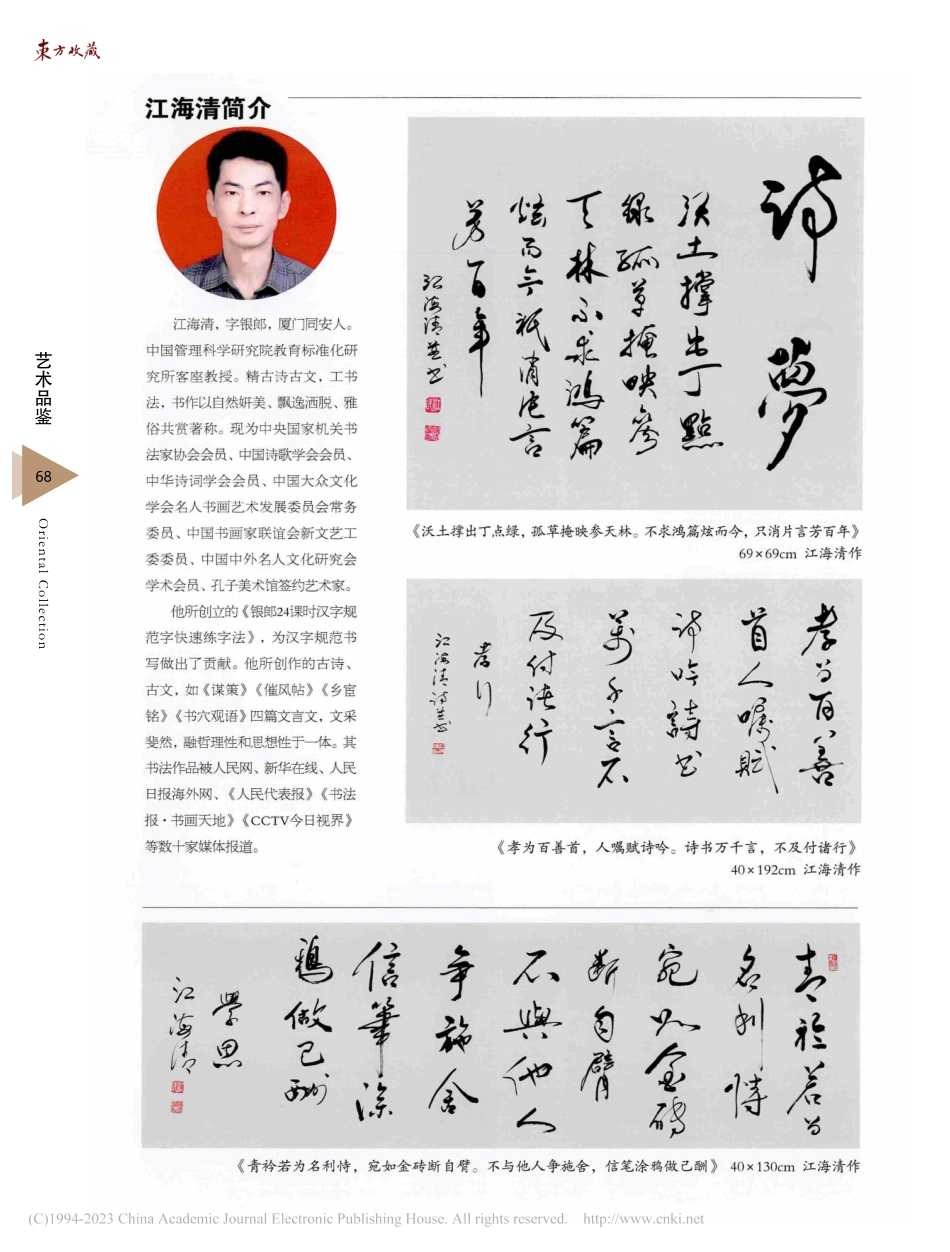 東方收藏
江海清简介
江海清，字银郎，厦门同安人。
中国管理科学研究院教育标准化研
究所客座教授。精古诗古文，工书
法，书作以自然妍美、飘逸洒脱、雅
俗共赏著称。现为中央国家机关书
法家协会会员、中国诗歌学会会员、
中华诗词学会会员、中国大众文化
学会名人书画艺术发展委员会常务
委员、中国书画家联谊会新文艺工
委委员、中国中外名人文化研究会
学术会员、孔子美术馆签约艺术家。
他所创立的《银郎24课时汉字规
范字快速练字法》，为汉字规范书
写做出了贡献。他所创作的古诗、
古文，如《谋策》《催风帖》《乡宦
铭》《书穴观语》四篇文言文，文采
斐然，融哲理性和思想性于一体。其
书法作品被人民网、新华在线、人民
日报海外网、《人民代表报》《书法
报·书画天地》《CCTV今日视界》
等数十家媒体报道。
艺术品鉴
68
Oriental Collection
詩夢
沃土撐出丁點
綠孤草掩映參
天林不求鴻篇
炫而今祇消片言
芳百年
江海清並书
《沃土撑出丁点绿，孤草掩映参天林。不求鸿篇炫而今，只消片言芳百年》
69×69cm 江海清作
孝为百善
首人嘱賦
诗吟詩书
萬千言不
及付诸行
孝行
江海清诗並书
《孝为百善首，人嘱赋诗吟。诗书万千言，不及付诸行》
40×192cm 江海清作
青衿若为
名利恃
宛如金磚
断自臂
不與他人
争施舍
信筆涂
鴉做己酬
學思
江海清
《青衿若为名利恃，宛如金砖断自臂。不与他人争施舍，信笔涂鸦做己酬》 40×130cm 江海清作
(C)1994-2023 China Academic Journal Electronic Publishing House. All rights reserved. http://www.cnki.net